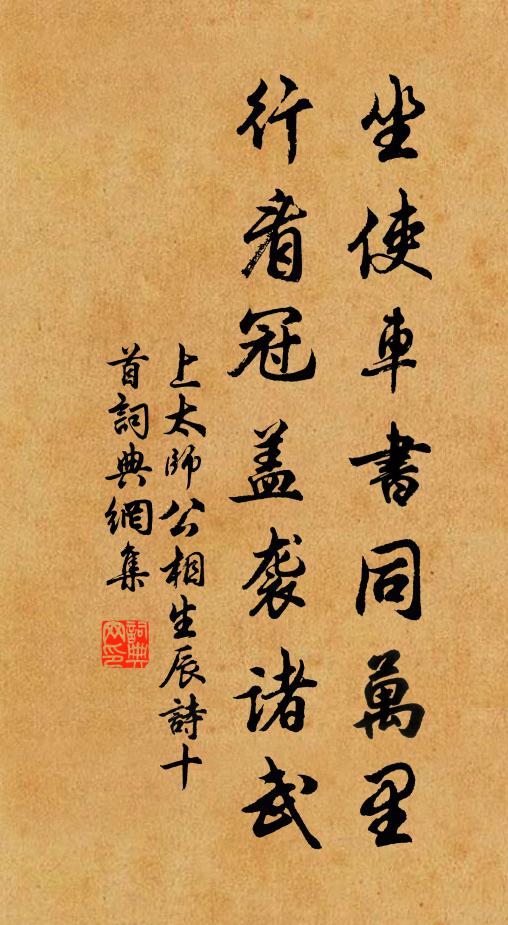 坐使車書同萬里
行看冠盖袭诸武
上太師公相生辰詩十
首詞典網集
詞典
网印